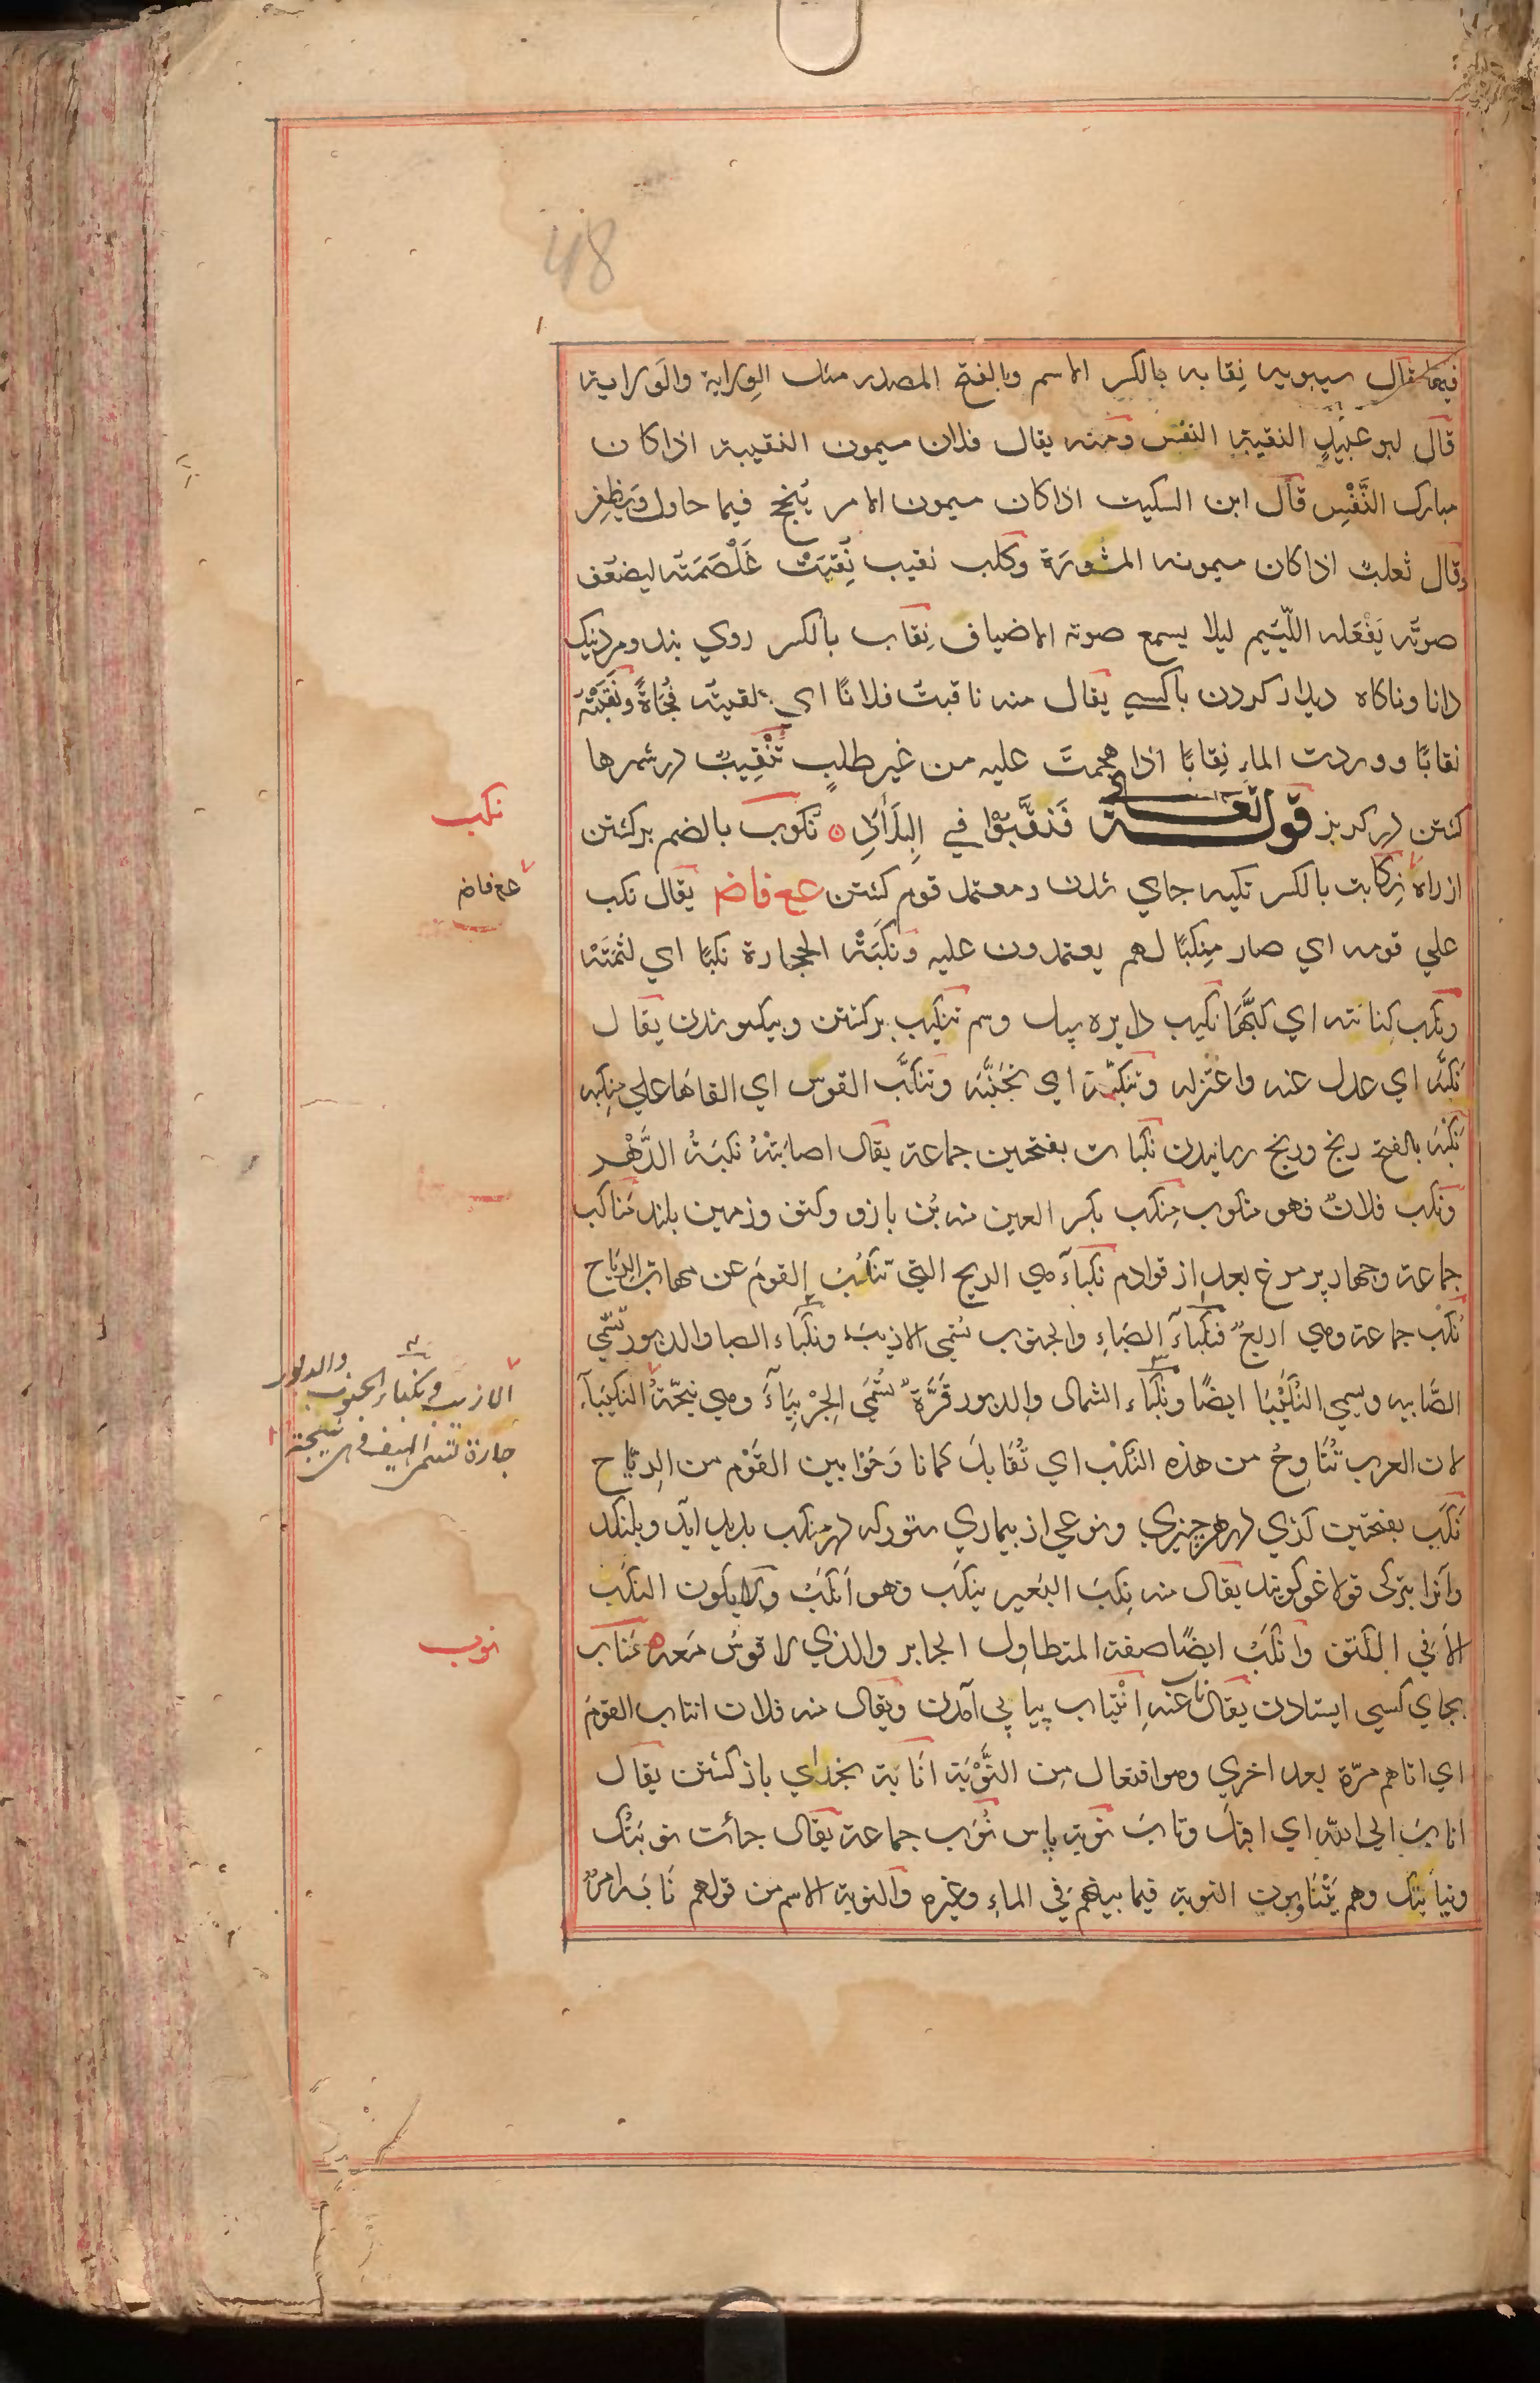 48
فيهما قال سيبويه نِقابه بالكسر الاسم وبالفتح المصدر مثل الوِلاية والوَلاية
قال ابو عبيدٍ النقيبة النفس ومنه يقال فلان ميمون النقيبة اذا كان
مبارك النَّفْسِ قال ابن السكيت اذا كان ميمون الامر يَنجح فيما حاول ويَظفِر
وقال ثعلبٌ اذا كان ميمونه المشورَة وكلب نقيب نُقِبَتْ غَلْصَمَته ليضعَف
صوتَه يَفْعَله اللّئيم ليلا يسمع صوته الاضياف نِقاب بالكسر روي بند ومرد نيك
دانا وناكاه ديدار كردن با كسي يقال منه ناقبتُ فلانًا اي لقيتَه فُجَاةً ونَقَبْتُهُ
نقابًا ووردت الماءِ نِقابًا اذا هجمتَ عليه من غير طلبٍ تَنْقِيبٌ در شهرها
كشتن در كريز قوله تعالى فَنَقَّبُوْا فِي البِلَادِ نكوب بالضم بركشتن
از راه نِكابت بالكسر تكيه جاي شدن و معتمد قوم كشتن عع فاض يقال نكب
علي قومه اي صار مِنكبًا لهم يعتمدون عليه ونَكَبَتْهُ الحجارة نكبًا اي لثمَتْه
ونكب كنانته اي كبَّهَا نكيب دايره پيل وسم تنكيب بركشتن وبيكسو شدن يقال
نكبَّه اي عدل عنه واعتزله وتنكبّه اي تجَنَّبَه وتنكَّب القوس اي القاها علي منكِبه
نَكْبَه بالفتح رنج ورنج رسانيدن نكبات بفتحتين جماعة يقال اصابَتْهُ نكبَةُ الدَّهْر
ونكب فلانٌ فهو منكوب مِنكب بكسر العين منه بُن بازو وكتف وزمين بلند مَناكب
جماعة وچهار پر مرغ بعد از قوادم نكبآء هي الريح التي تنكُبُ القومَ عن مهابّ الرِيَاح
نُكْب جماعة وهي اربعٌ فنكْباَءُ الصَبَاءِ والجنوب تُسَمى الازيبَ ونكْبَاء الصبا والدبور تسَمّي
الصَّابيه ويسمي النُّكَيْبَا ايضًا ونَكْبَاء الشمال والدبور قَرَّةٌ تُسَمّي الجِرْبِيَآءُ وهي نيحَةُ النكيبَآء
لان العرب تُنَاوِحُ من هذه النُكْب اي تُقَابلَ كما ناوَحُوا بين القَوْم من الرِيَاح
نَكَب بفتحتين كژي در هر چيزي ونوعي از بيماري ستور كه در منكب پديد آيد وبلنكد
وآنرا بتركى قولاغو كويند يقال منه نِكبَ البَعير ينكَب وهو اَنكَبُ ولا يكون النكَب
الاَّ في الكتف وانكَبُ ايضًا صفة المتطاوِل الجابر والذي لا قوسَ مَعه مَناب
بجاي كسي ايستادن يقال نابَ عنه اِنْتِياب پياپي آمدن ويقال منه فلان انتاب القومَ
اي اتاهم مرّة بعد اخري وهو افتعال مِن النَّوْبَة انَابَة بخداي باز كشتن يقال
انابَ الي الله اي اقبلَ وتابَ نوبة پاس نُوَب جماعة يقال جائت نوبَتُك
ونيابتك وهم يَتَنَاوبون النوبة فيما بينهم في الماءِ وغيره والنوبة الاسم من قولهم نَابَه امرٌ
نكب
عع فاض
الازيب ونكباء الجنوب والدبور
حارة تسمى الهيف وهي نيحة
نوب